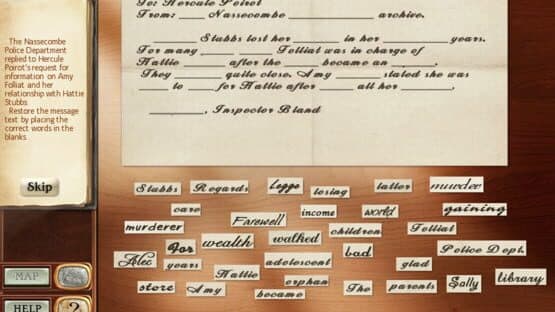 The Nassecombe
Police Department
replied to Hercule
Poirot's request for
information on Amy
Folliat and her
relationship with Hattie
Stubbs
Restore the message
text by placing the
correct words in the
blanks.
Skip
MAP
HELP
?
To: Hercule Poirot
From: ____ Nassecombe ____________ archive.
Stubbs lost her ________ in her ________ years.
For many ______ ______ Folliat was in charge of
Hattie ________ after the ______ became an ________.
They ________ quite close. Amy ______ stated she was
to ____ for Hattie after ______ all her __________.
__________, Inspector Bland
Stubbs Regards Legge losing latter murder
care Farewell income world gaining
murderer children Folliat
For wealth walked bad Police Dept.
Alec years adolescent glad
Hattie orphan Sally library
store Amy became The parents